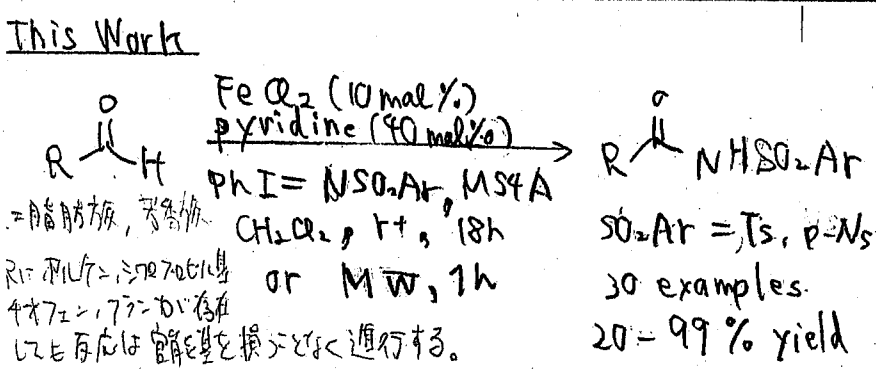 This Work
O
R H
FeCl2 (10 mol%)
pyridine (40 mol%)
PhI=NSO2Ar, MS4A
CH2Cl2, rt, 18h
or MW, 1h
O
R NHSO2Ar
SO2Ar = Ts, p-Ns
30 examples.
20-99% yield
=脂肪族, 芳香族
Rに アルケン, シクロプロピル基
チオフェン, フランが存在
しても反応は官能基を損うことなく進行する。